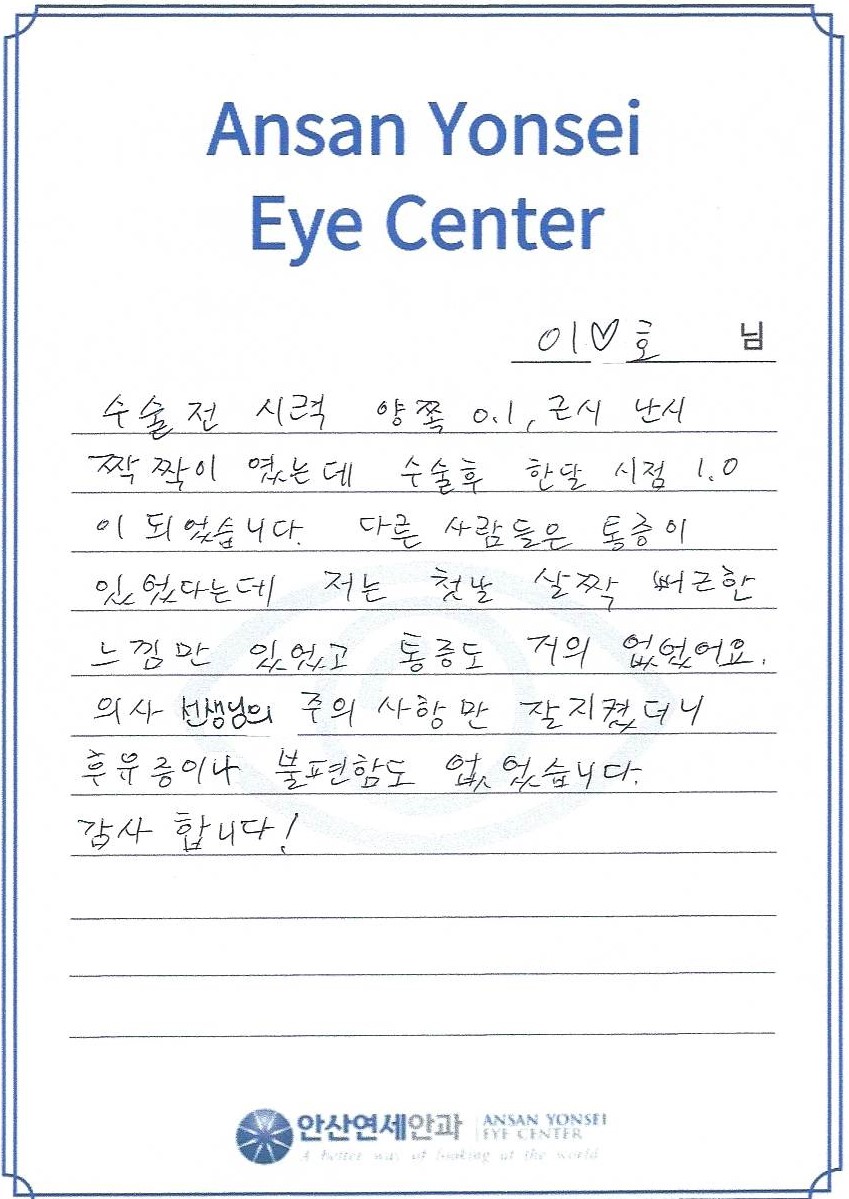 Ansan Yonsei
Eye Center
이♡호 님
수술전 시력 양쪽 0.1, 근시 난시
짝짝이 였는데 수술후 한달 시점 1.0
이 되었습니다. 다른 사람들은 통증이
있었다는데 저는 첫날 살짝 뻐근한
느낌만 있었고 통증도 거의 없었어요.
의사 선생님의 주의 사항만 잘지켰더니
후유증이나 불편함도 없었습니다.
감사 합니다!
안산연세안과 ANSAN YONSEI
EYE CENTER
A better way of looking at the world